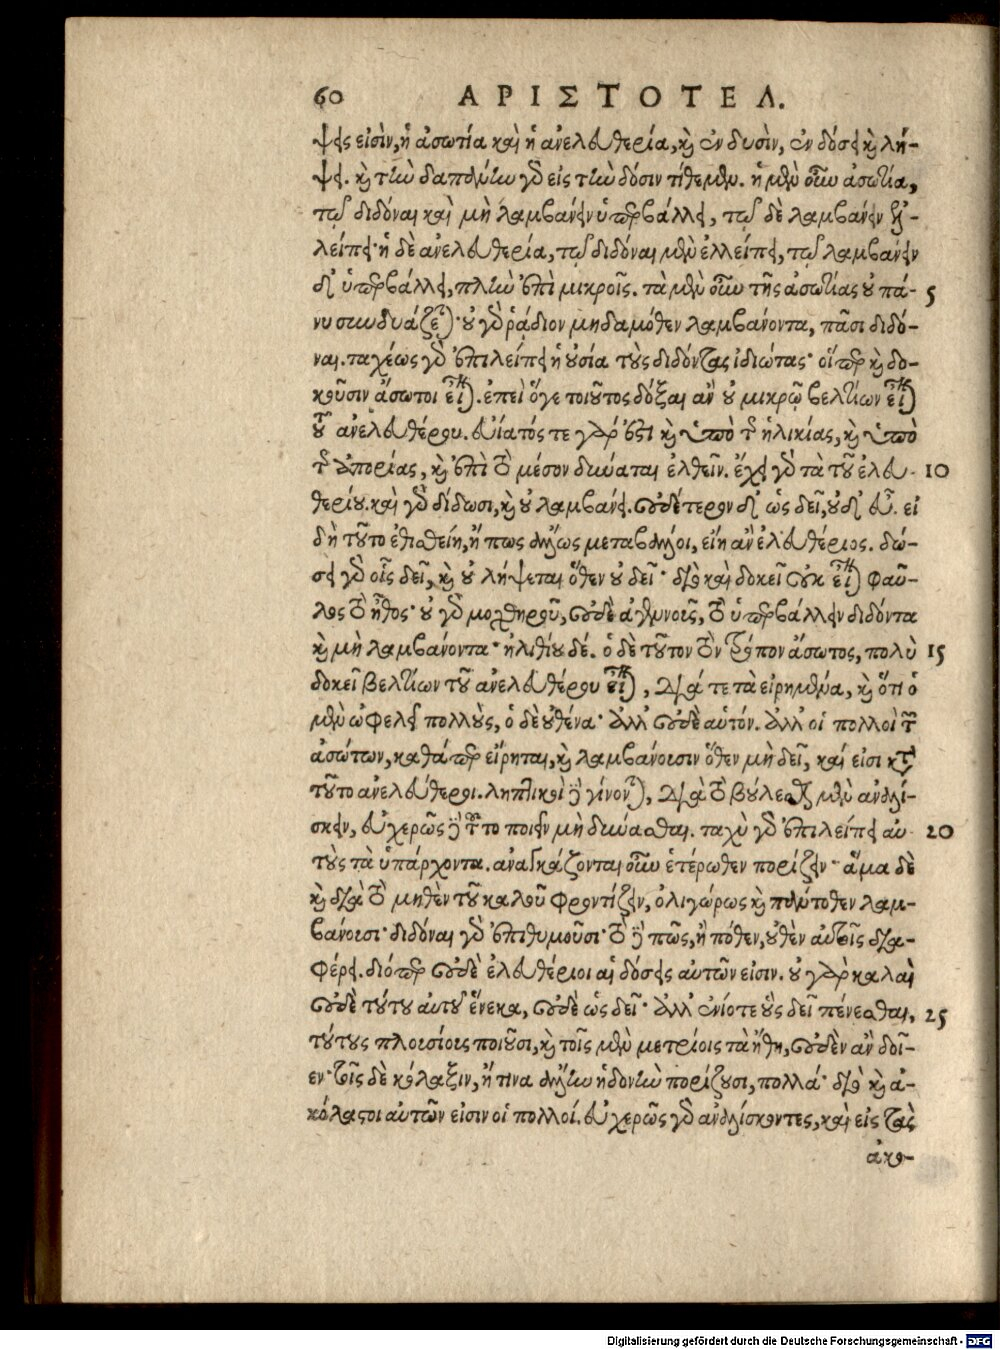 60 ΑΡΙΣΤΟΤΕΛ.
ψεις εἰσὶν, ἡ ἀσωτία καὶ ἡ ἀνελευθερία, καὶ ἐν δυσὶν, ἐν δόσει καὶ λή-
ψει. καὶ τὴν δαπάνην γὰρ εἰς τὴν δόσιν τίθεμεν. ἡ μὲν οὖν ἀσωτία,
τῷ διδόναι καὶ μὴ λαμβάνειν ὑπερβάλλει, τῷ δὲ λαμβάνειν ἐλ-
λείπει· ἡ δὲ ἀνελευθερία, τῷ διδόναι μὲν ἐλλείπει, τῷ λαμβάνειν
δ' ὑπερβάλλει, πλὴν ἐπὶ μικροῖς. τὰ μὲν οὖν τῆς ἀσωτίας οὐ πά- 5
νυ συνδυάζεται· οὐ γὰρ ῥάδιον μηδαμόθεν λαμβάνοντα, πᾶσι διδό-
ναι. ταχέως γὰρ ἐπιλείπει ἡ οὐσία τοὺς διδόντας ἰδιώτας· οἵπερ καὶ δο-
κοῦσιν ἄσωτοι εἶναι. ἐπεὶ ὅγε τοιοῦτος δόξαι ἂν οὐ μικρῷ βελτίων εἶναι
τοῦ ἀνελευθέρου. εὐίατός τε γάρ ἐστι καὶ ὑπὸ τῆς ἡλικίας, καὶ ὑπὸ
τῆς ἀπορίας, καὶ ἐπὶ τὸ μέσον δύναται ἐλθεῖν. ἔχει γὰρ τὰ τοῦ ἐλευ- 10
θερίου. καὶ γὰρ δίδωσι, καὶ οὐ λαμβάνει. οὐδέτερον δ' ὡς δεῖ, οὐδ' εὖ. εἰ
δὴ τοῦτο ἐθισθείη, ἤ πως ἄλλως μεταβάλοι, εἴη ἂν ἐλευθέριος. δώ-
σει γὰρ οἷς δεῖ, καὶ οὐ λήψεται ὅθεν οὐ δεῖ· διὸ καὶ δοκεῖ οὐκ εἶναι φαῦ-
λος τὸ ἦθος· οὐ γὰρ μοχθηροῦ, οὐδὲ ἀγεννοῦς, τὸ ὑπερβάλλειν διδόντα
καὶ μὴ λαμβάνοντα· ἠλιθίου δέ. ὁ δὲ τοῦτον τὸν τρόπον ἄσωτος, πολὺ 15
δοκεῖ βελτίων τοῦ ἀνελευθέρου εἶναι, διά τε τὰ εἰρημένα, καὶ ὅτι ὁ
μὲν ὠφελεῖ πολλοὺς, ὁ δὲ οὐθένα· ἀλλ' οὐδὲ αὑτόν. ἀλλ' οἱ πολλοὶ τῶν
ἀσώτων, καθάπερ εἴρηται, καὶ λαμβάνουσιν ὅθεν μὴ δεῖ, καί εἰσι κατὰ
τοῦτο ἀνελεύθεροι. ληπτικοὶ δὲ γίνονται, διὰ τὸ βούλεσθαι μὲν ἀναλί-
σκειν, εὐχερῶς δὲ τοῦτο ποιεῖν μὴ δύνασθαι. ταχὺ γὰρ ἐπιλείπει αὐ- 20
τοὺς τὰ ὑπάρχοντα. ἀναγκάζονται οὖν ἑτέρωθεν πορίζειν· ἅμα δὲ
καὶ διὰ τὸ μηθὲν τοῦ καλοῦ φροντίζειν, ὀλιγώρως καὶ πάντοθεν λαμ-
βάνουσι· διδόναι γὰρ ἐπιθυμοῦσι· τὸ δὲ πῶς, ἢ πόθεν, οὐθὲν αὐτοῖς δια-
φέρει. διόπερ οὐδὲ ἐλευθέριοι αἱ δόσεις αὐτῶν εἰσιν. οὐ γὰρ καλαὶ
οὐδὲ τούτου αὐτοῦ ἕνεκα, οὐδὲ ὡς δεῖ· ἀλλ' ἐνίοτε οὓς δεῖ πένεσθαι, 25
τούτους πλουσίους ποιοῦσι, καὶ τοῖς μὲν μετρίοις τὰ ἤθη, οὐδὲν ἂν δοῖ-
εν· τοῖς δὲ κόλαξιν, ἤ τινα ἄλλην ἡδονὴν πορίζουσι, πολλά· διὸ καὶ ἀ-
κόλαστοι αὐτῶν εἰσιν οἱ πολλοί. εὐχερῶς γὰρ ἀναλίσκοντες, καὶ εἰς τὰς
ἀκο-
Digitalisierung gefördert durch die Deutsche Forschungsgemeinschaft - DFG